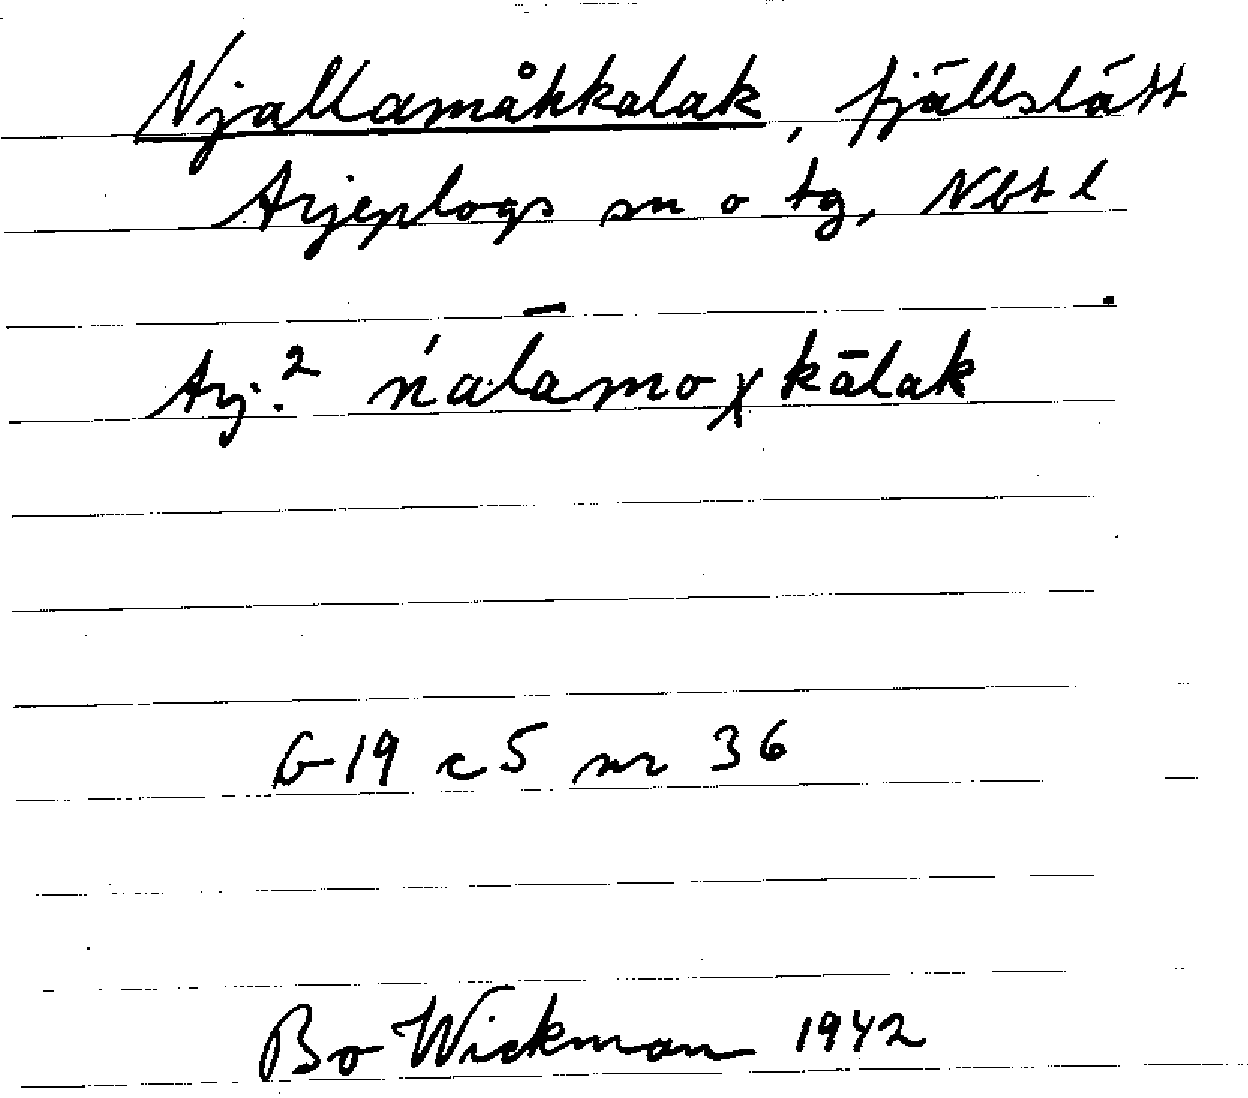 Njallamåkkalak, fjällslätt
Arjeplogs sn o tg, Nbt l
Arj.² ńal̄amoχkālak
G 19 c 5 nr 36
Bo Wickman 1942